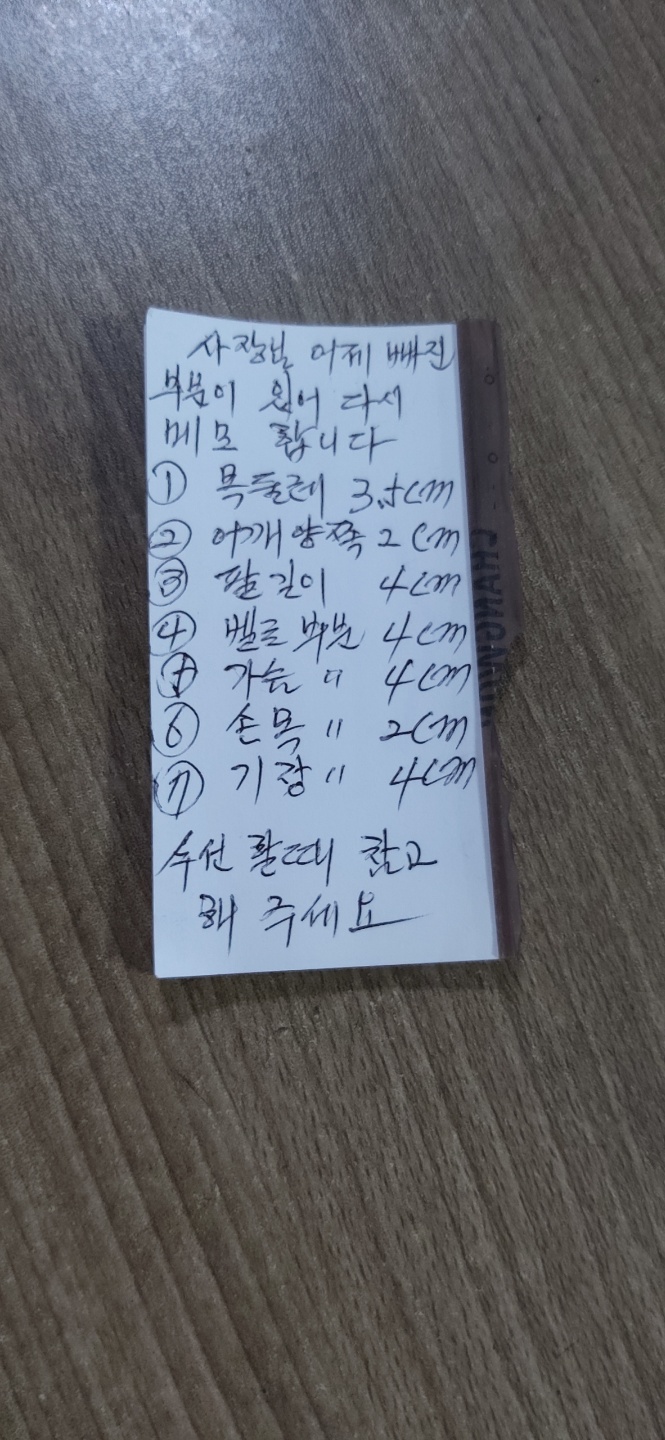 사장님 어제 빠진
부분이 있어 다시
메모 합니다
① 목둘레 3.5cm
② 어깨 양쪽 2cm
③ 팔길이 4cm
④ 벨로 부분 4cm
⑤ 가슴 〃 4cm
⑥ 손목 〃 2cm
⑦ 기장 〃 4cm
수선 할때 참고
해 주세요